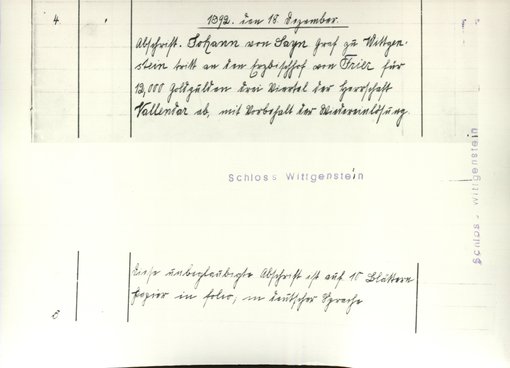 4 1392. den 18. Dezember.
Abschrift. Johann von Sayn Graf zu Wittgen-
stein tritt an den Erzbischhof von Trier für
13,000 Goldgulden drei Viertel der Herrschaft
Vallendar ab, mit Vorbehalt der Wiedereinlösung.
Schloss Wittgenstein
Schloss Wittgenstein
Diese unbeglaubigte Abschrift ist auf 10 Blättern
Papier in folio, in deutscher Sprache